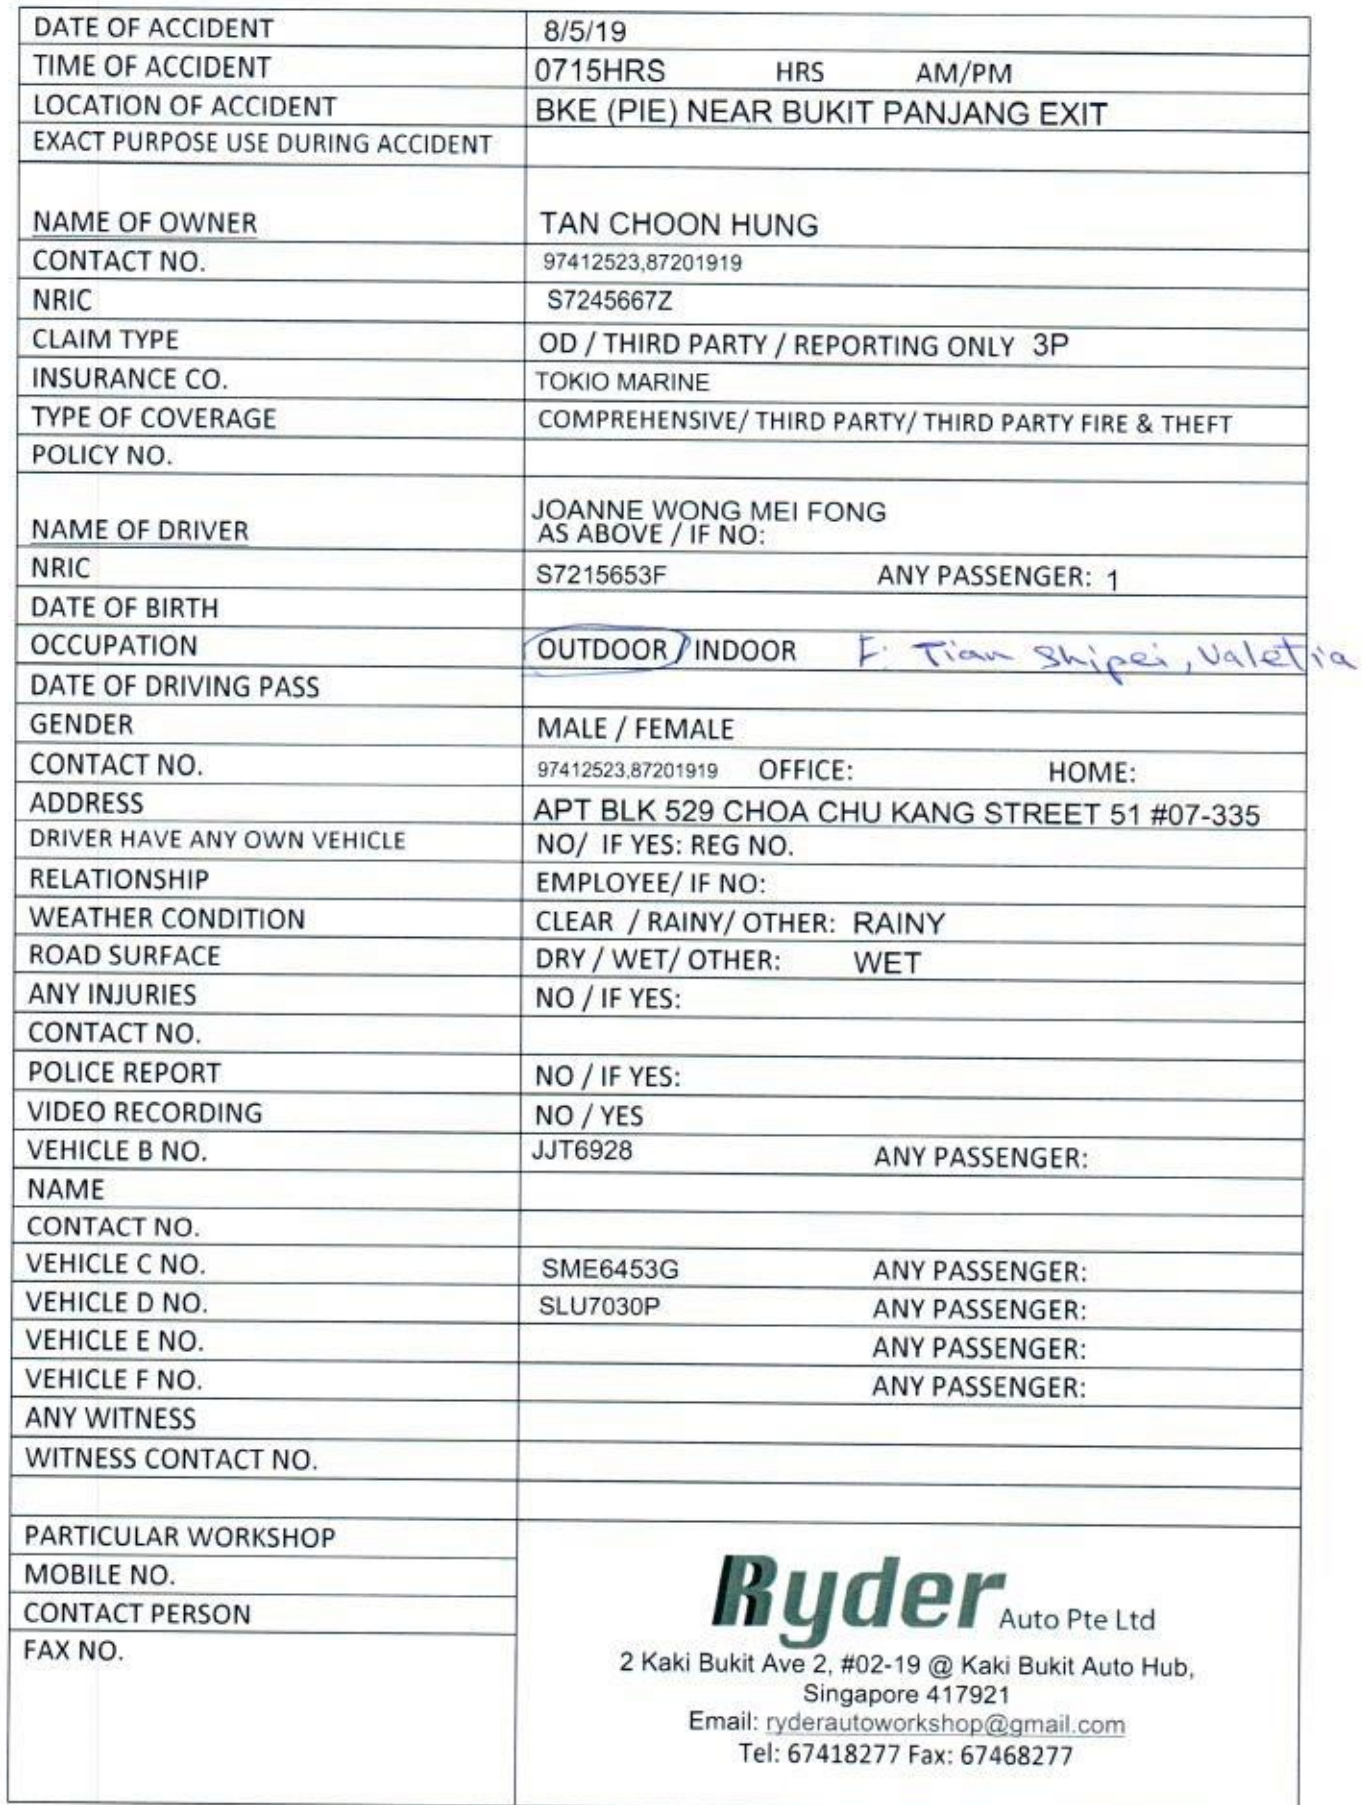 DATE OF ACCIDENT 8/5/19
TIME OF ACCIDENT 0715HRS HRS AM/PM
LOCATION OF ACCIDENT BKE (PIE) NEAR BUKIT PANJANG EXIT
EXACT PURPOSE USE DURING ACCIDENT
NAME OF OWNER TAN CHOON HUNG
CONTACT NO. 97412523,87201919
NRIC S7245667Z
CLAIM TYPE OD / THIRD PARTY / REPORTING ONLY 3P
INSURANCE CO. TOKIO MARINE
TYPE OF COVERAGE COMPREHENSIVE/ THIRD PARTY/ THIRD PARTY FIRE & THEFT
POLICY NO.
JOANNE WONG MEI FONG
NAME OF DRIVER AS ABOVE / IF NO:
NRIC S7215653F ANY PASSENGER: 1
DATE OF BIRTH
OCCUPATION OUTDOOR / INDOOR F: Tian Shipei, Valetia
DATE OF DRIVING PASS
GENDER MALE / FEMALE
CONTACT NO. 97412523,87201919 OFFICE: HOME:
ADDRESS APT BLK 529 CHOA CHU KANG STREET 51 #07-335
DRIVER HAVE ANY OWN VEHICLE NO/ IF YES: REG NO.
RELATIONSHIP EMPLOYEE/ IF NO:
WEATHER CONDITION CLEAR / RAINY/ OTHER: RAINY
ROAD SURFACE DRY / WET/ OTHER: WET
ANY INJURIES NO / IF YES:
CONTACT NO.
POLICE REPORT NO / IF YES:
VIDEO RECORDING NO / YES
VEHICLE B NO. JJT6928 ANY PASSENGER:
NAME
CONTACT NO.
VEHICLE C NO. SME6453G ANY PASSENGER:
VEHICLE D NO. SLU7030P ANY PASSENGER:
VEHICLE E NO. ANY PASSENGER:
VEHICLE F NO. ANY PASSENGER:
ANY WITNESS
WITNESS CONTACT NO.
PARTICULAR WORKSHOP
MOBILE NO.
CONTACT PERSON
FAX NO.
Ryder Auto Pte Ltd
2 Kaki Bukit Ave 2, #02-19 @ Kaki Bukit Auto Hub,
Singapore 417921
Email: ryderautoworkshop@gmail.com
Tel: 67418277 Fax: 67468277